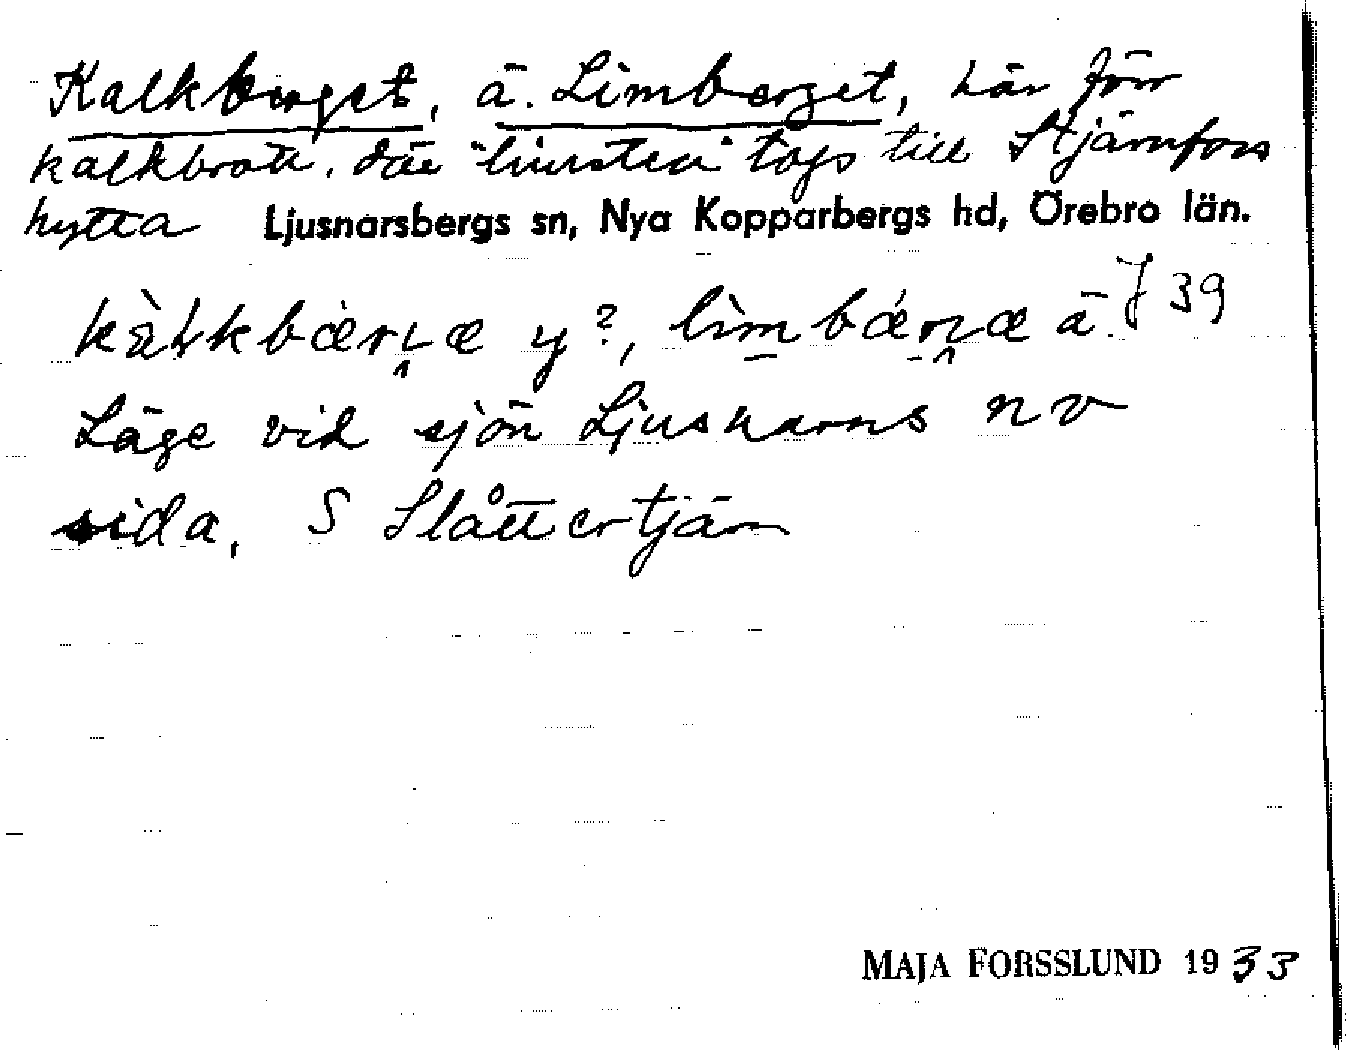 Kalkberget, ä. Limberget, här förr
kalkbrott, där "limsten" togs till Stjärnfors
hytta Ljusnarsbergs sn, Nya Kopparbergs hd, Örebro län.
y?, ä. J 39
Läge vid sjön Ljusnarns n v
sida, S Slåttertjärn
MAJA FORSSLUND 1933